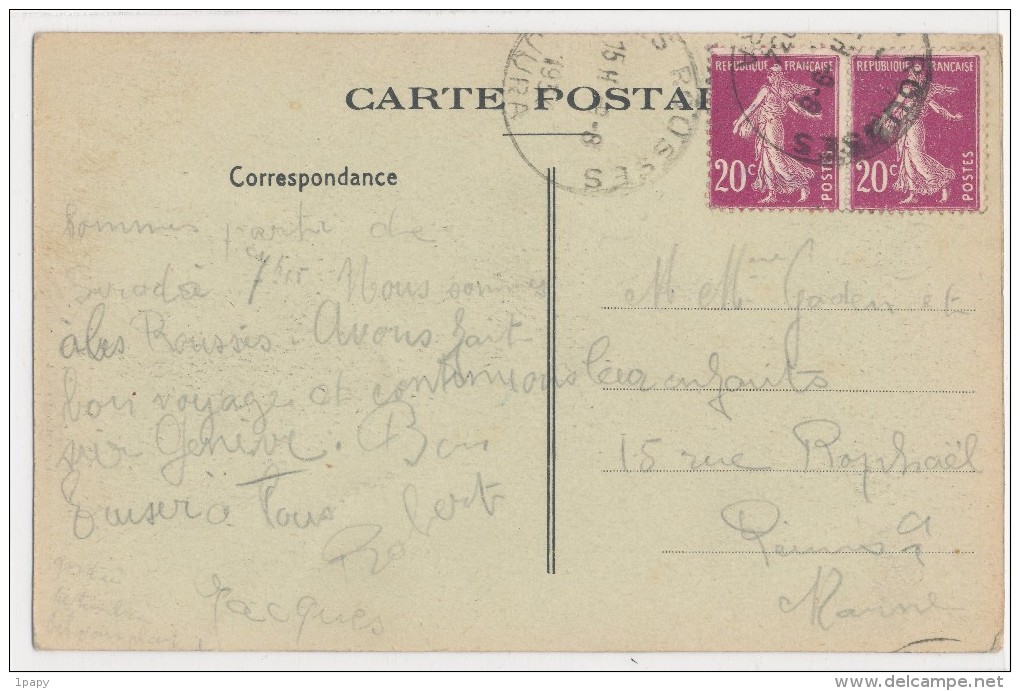 CARTE POSTAL
Correspondance
REPUBLIQUE FRANÇAISE
20c POSTES
REPUBLIQUE FRANÇAISE
20c POSTES
ROUSSES
JURA
15 H
8-8
Sommes parti de
7h15 Nous sommes
à les Rousses. Avons fait
bon voyage et continuons
sur Genève. Bon
Baiser à Tous
Robert
Jacques
M et Mme Gaden et
enfants
15 rue Raphaël
Reims
Marne
1papy
delcampe.net